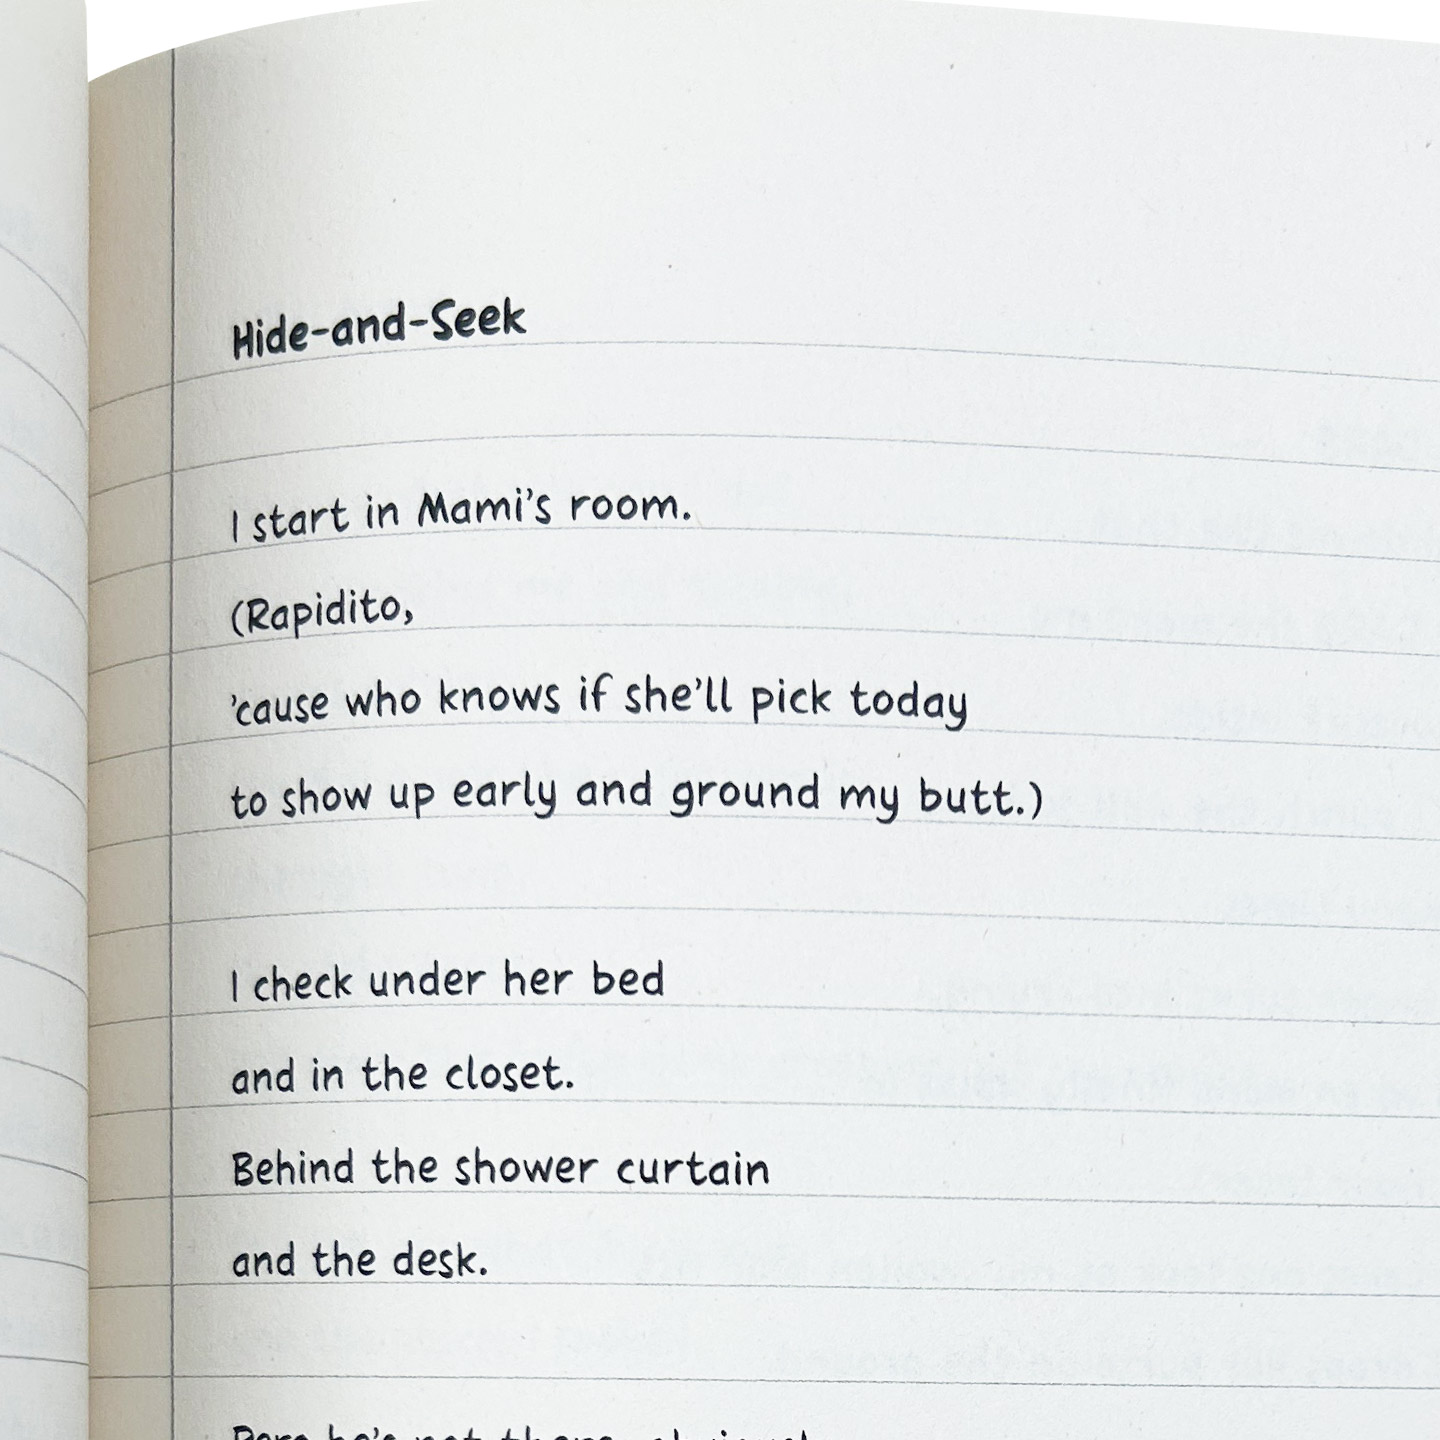 Hide-and-Seek
I start in Mami's room.
(Rapidito,
'cause who knows if she'll pick today
to show up early and ground my butt.)
I check under her bed
and in the closet.
Behind the shower curtain
and the desk.
Pero he's not there, obvious!